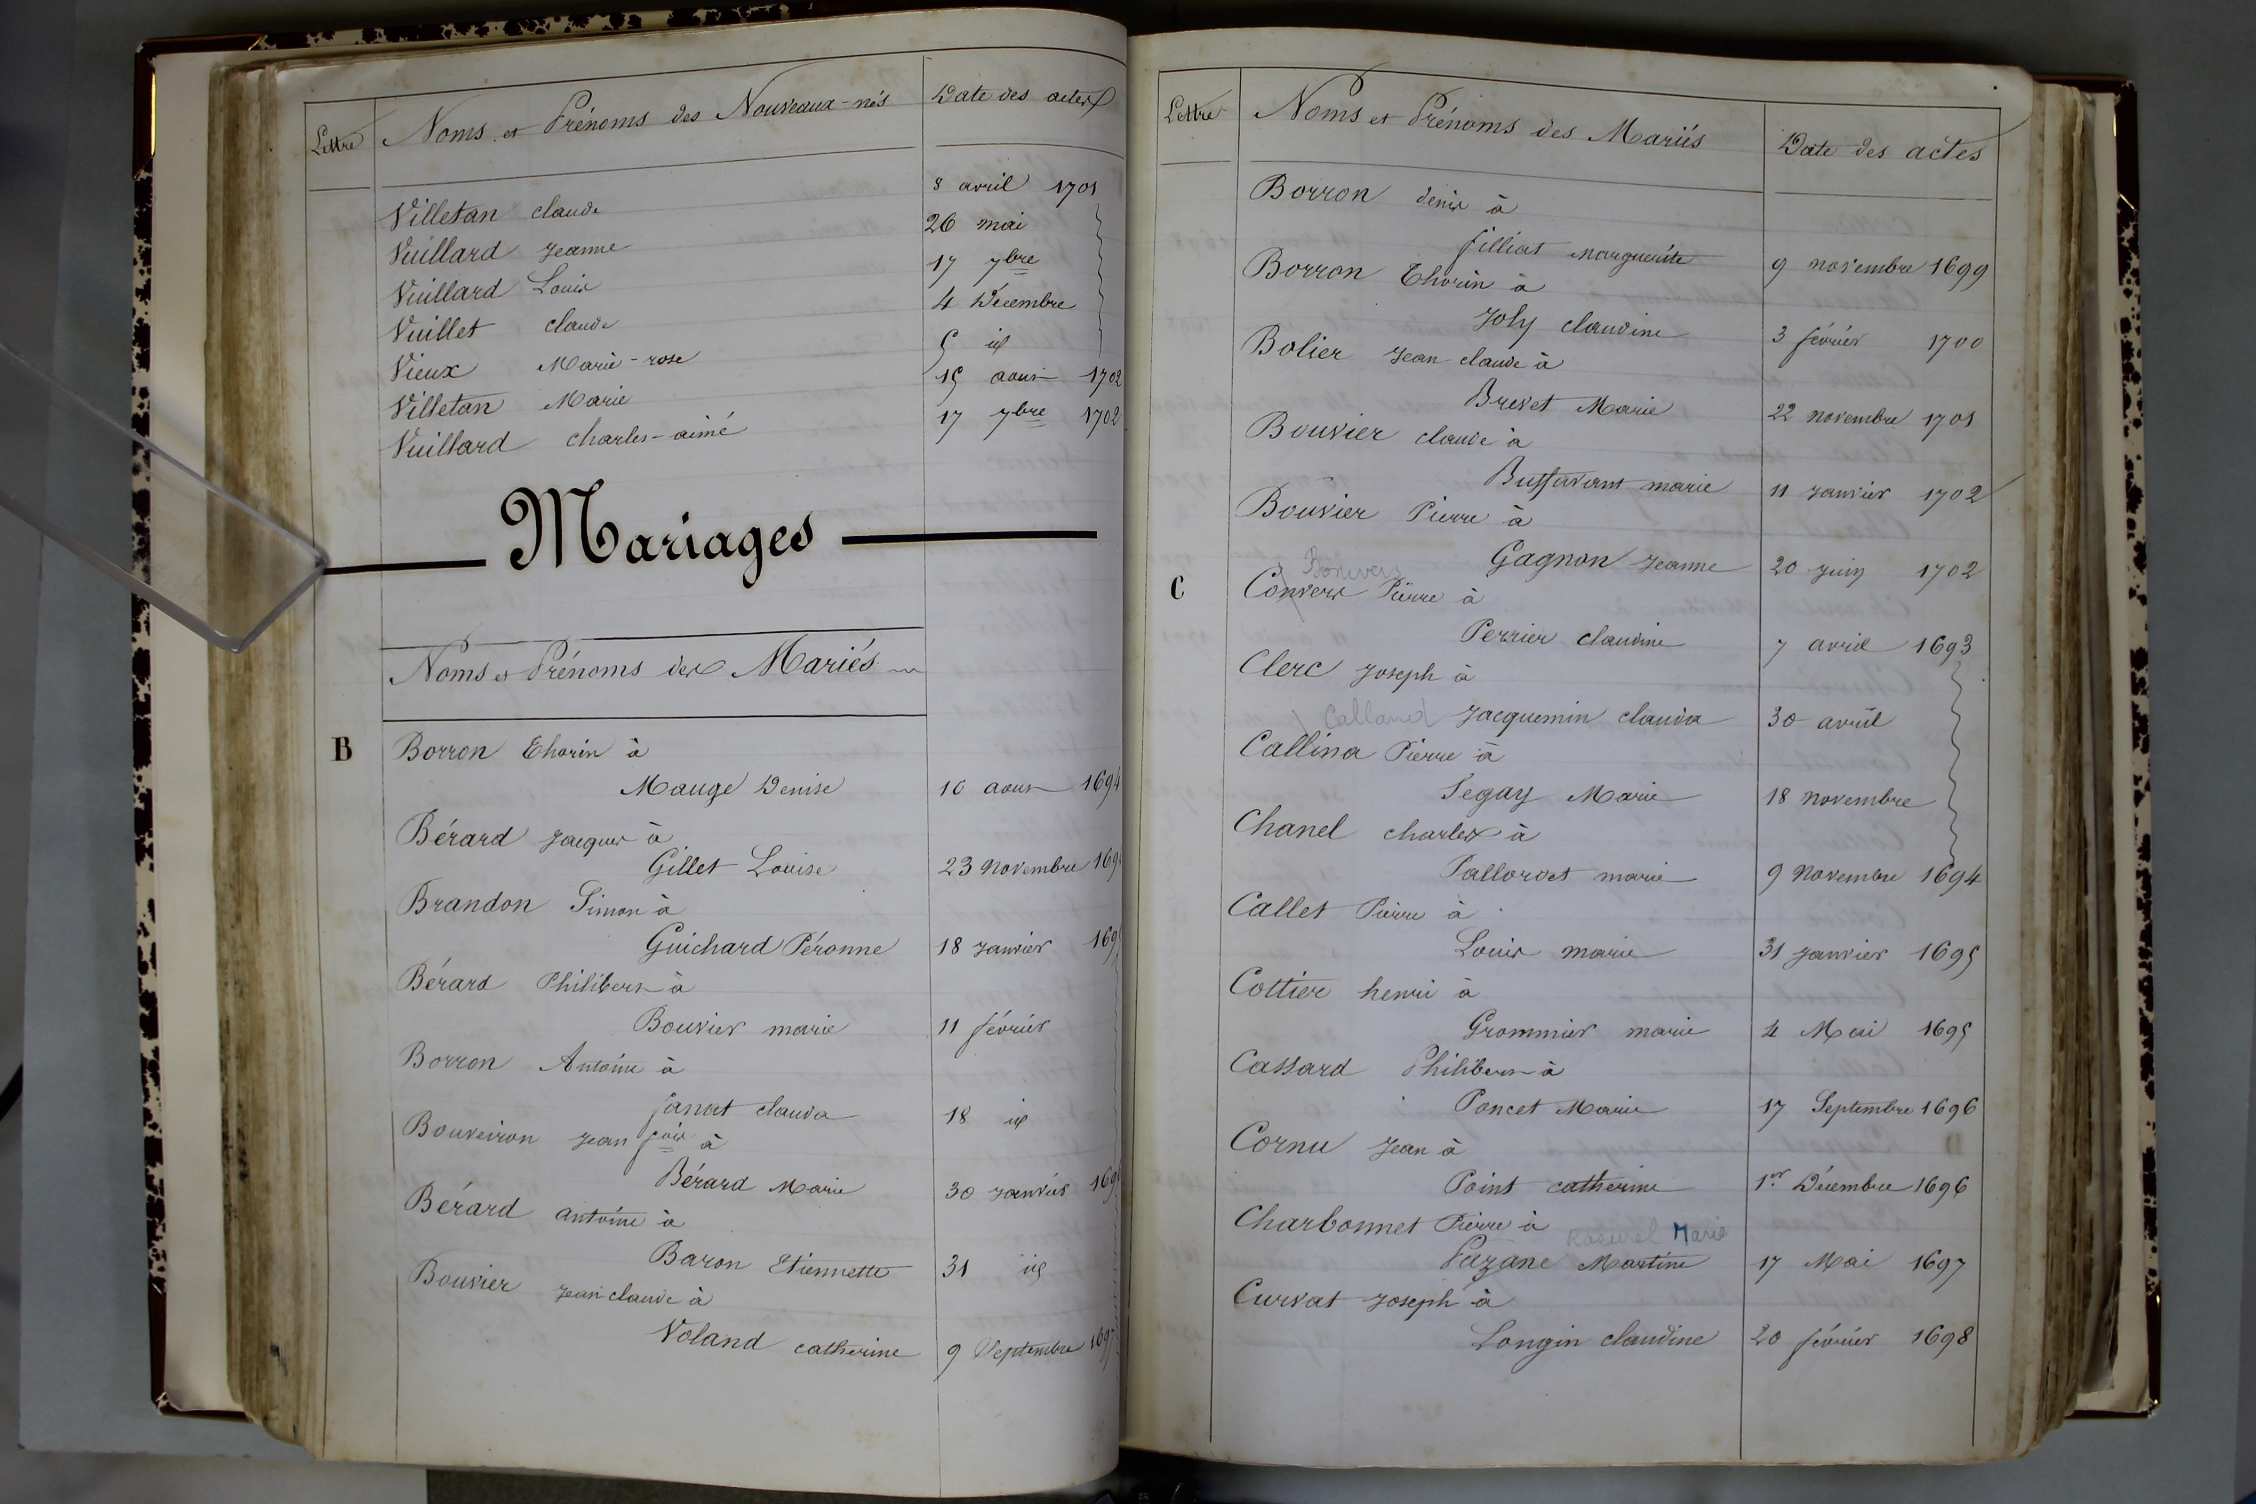 Lettre Noms et Prénoms des Nouveaux-nés Date des actes
Villetan claude 8 avril 1701
Vuillard Jeanne 26 mai
Vuillard Louis 17 7bre
Vuillet claude 4 Décembre
Vieux Marie-rose 5 id
Villetan Marie 15 aout 1702
Vuillard charles-aimé 17 7bre 1702
Mariages
Noms et Prénoms des Mariés
B Borron Thorin à
Mauge Denise 10 aout 1694
Bérard Jacques à
Gillet Louise 23 Novembre
Brandon Simon à
Guichard Péronne 18 Janvier
Bérard Philibert à
Bouvier marie 11 février
Borron Antoine à
Janat clauda 18 id
Bouveiron Jean fois à
Bérard Marie 30 Janvier
Bérard antoine à
Baron Etiennette 31 id
Bouvier Jean claude à
Voland catherine 9 Septembre 1697
Lettre Noms et Prénoms des Mariés Date des actes
Borron denis à
filliat marguerite 9 novembre 1699
Borron Thorin à
Joly claudine 3 février 1700
Bolier Jean-claude à
Brevet Marie 22 novembre 1701
Bouvier claude à
Buffavant marie 11 Janvier 1702
Bouvier Pierre à
Gagnon Jeanne 20 Juin 1702
Bonivers
C Convers Pierre à
Perrier claudine 7 avril 1693
Clerc Joseph à
Jacquemin clauda 30 avril
Calland
Callina Pierre à
Segay Marie 18 novembre
Chanel charles à
Pallordet marie 9 Novembre 1694
Callet Pierre à
Louis marie 31 Janvier 1695
Cottier henri à
Grommier marie 4 Mai 1695
Cassard Philibert à
Poncet Marie 17 Septembre 1696
Cornu Jean à
Point catherine 1er Décembre 1696
Charbonnet Pierre à
Marie
Pazane Martine 17 Mai 1697
Curvat Joseph à
Longin claudine 20 février 1698